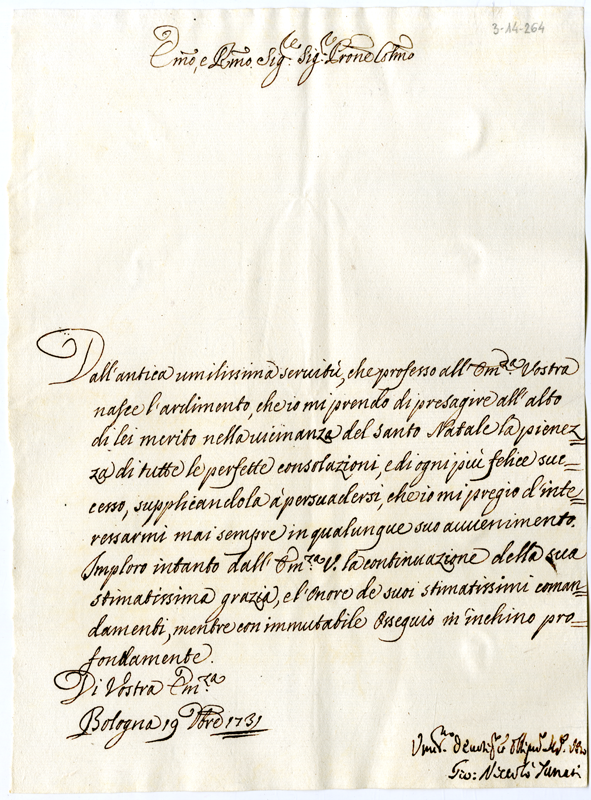 3-14-264
Emo, e Rmo Sig.re Sig.re Prone Colmo
Dall'antica umilissima seruitù, che professo all'Em.za Vostra
nasce l'ardimento, che io mi prendo di presagire all'alto
di lei merito nella uicinanza del santo Natale la pienez=
za di tutte le perfette consolazioni, e di ogni più felice suc=
cesso, supplicandola à persuadersi, che io mi pregio d'inte=
ressarmi mai sempre in qualunque suo auuenimento.
Imploro intanto dall'Em.za V. la continuazione della sua
stimatissima grazia, e l'onore de suoi stimatissimi coman=
damenti, mentre con immutabile Ossequio m'inchino pro=
fondamente.
Di Vostra Em.za
Bologna 19 Xbre 1731
Umil.mo Deuotis.o
Gio: Niccolò Tanari